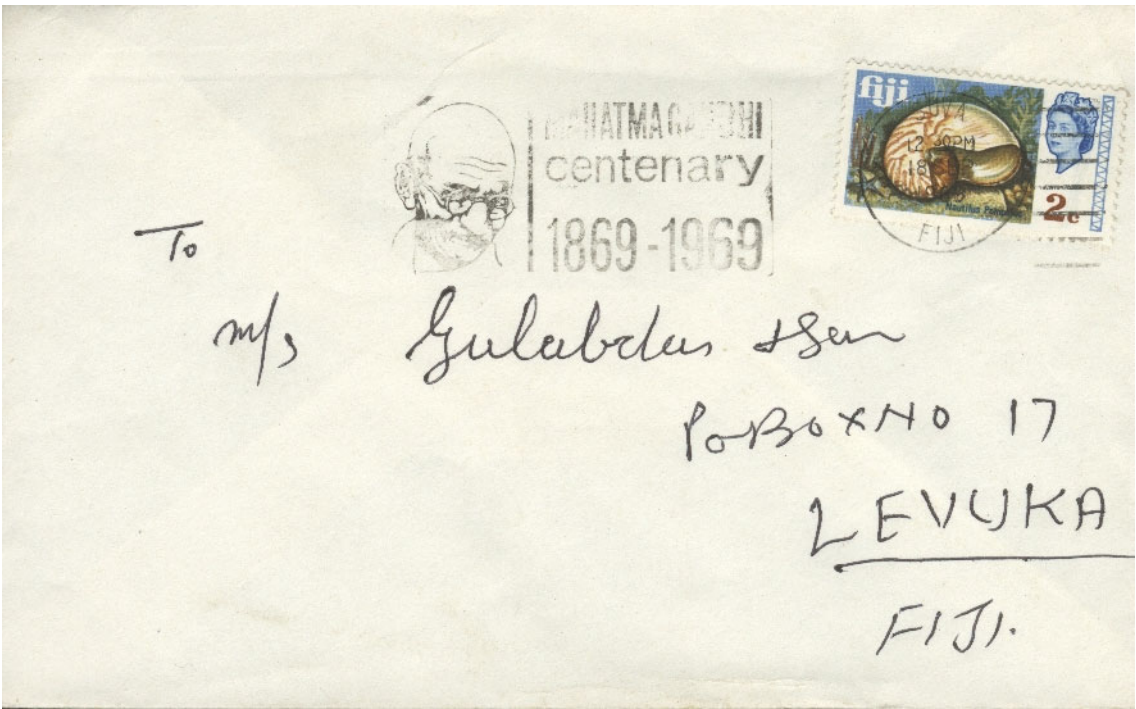 MAHATMA GANDHI
centenary
1869-1969
fiji
SUVA
12 30PM
18
FIJI
Nautilus
2c
To
M/s Gulabdas & Son
PO BOX NO 17
LEVUKA
FIJI.